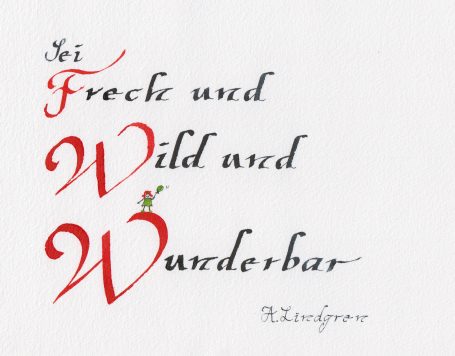 Sei
Frech und
Wild und
Wunderbar
A. Lindgren